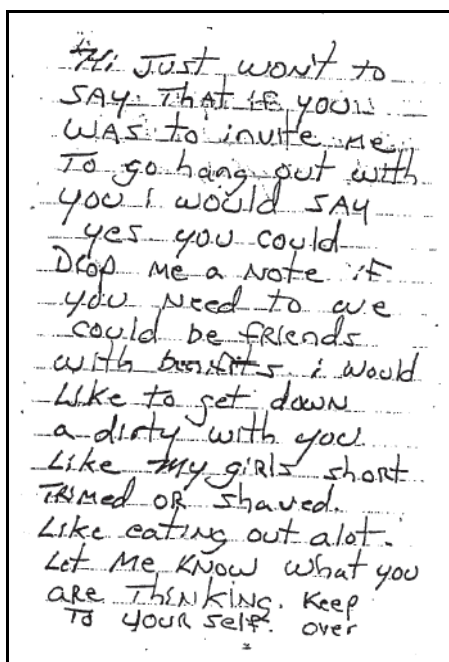 Hi Just won't to
SAY. THAT iF you
WAS to invite me
To go hang out with
you i would SAY
yes you could
Drop me a Note iF
you Need to we
could be friends
with benfits i would
Like to get down
a dirty with you
Like my girls short
TRIMED OR shaved.
Like eating out alot.
Let me KNOW what you
aRe THiNKiNG. Keep
To YOUR self. over